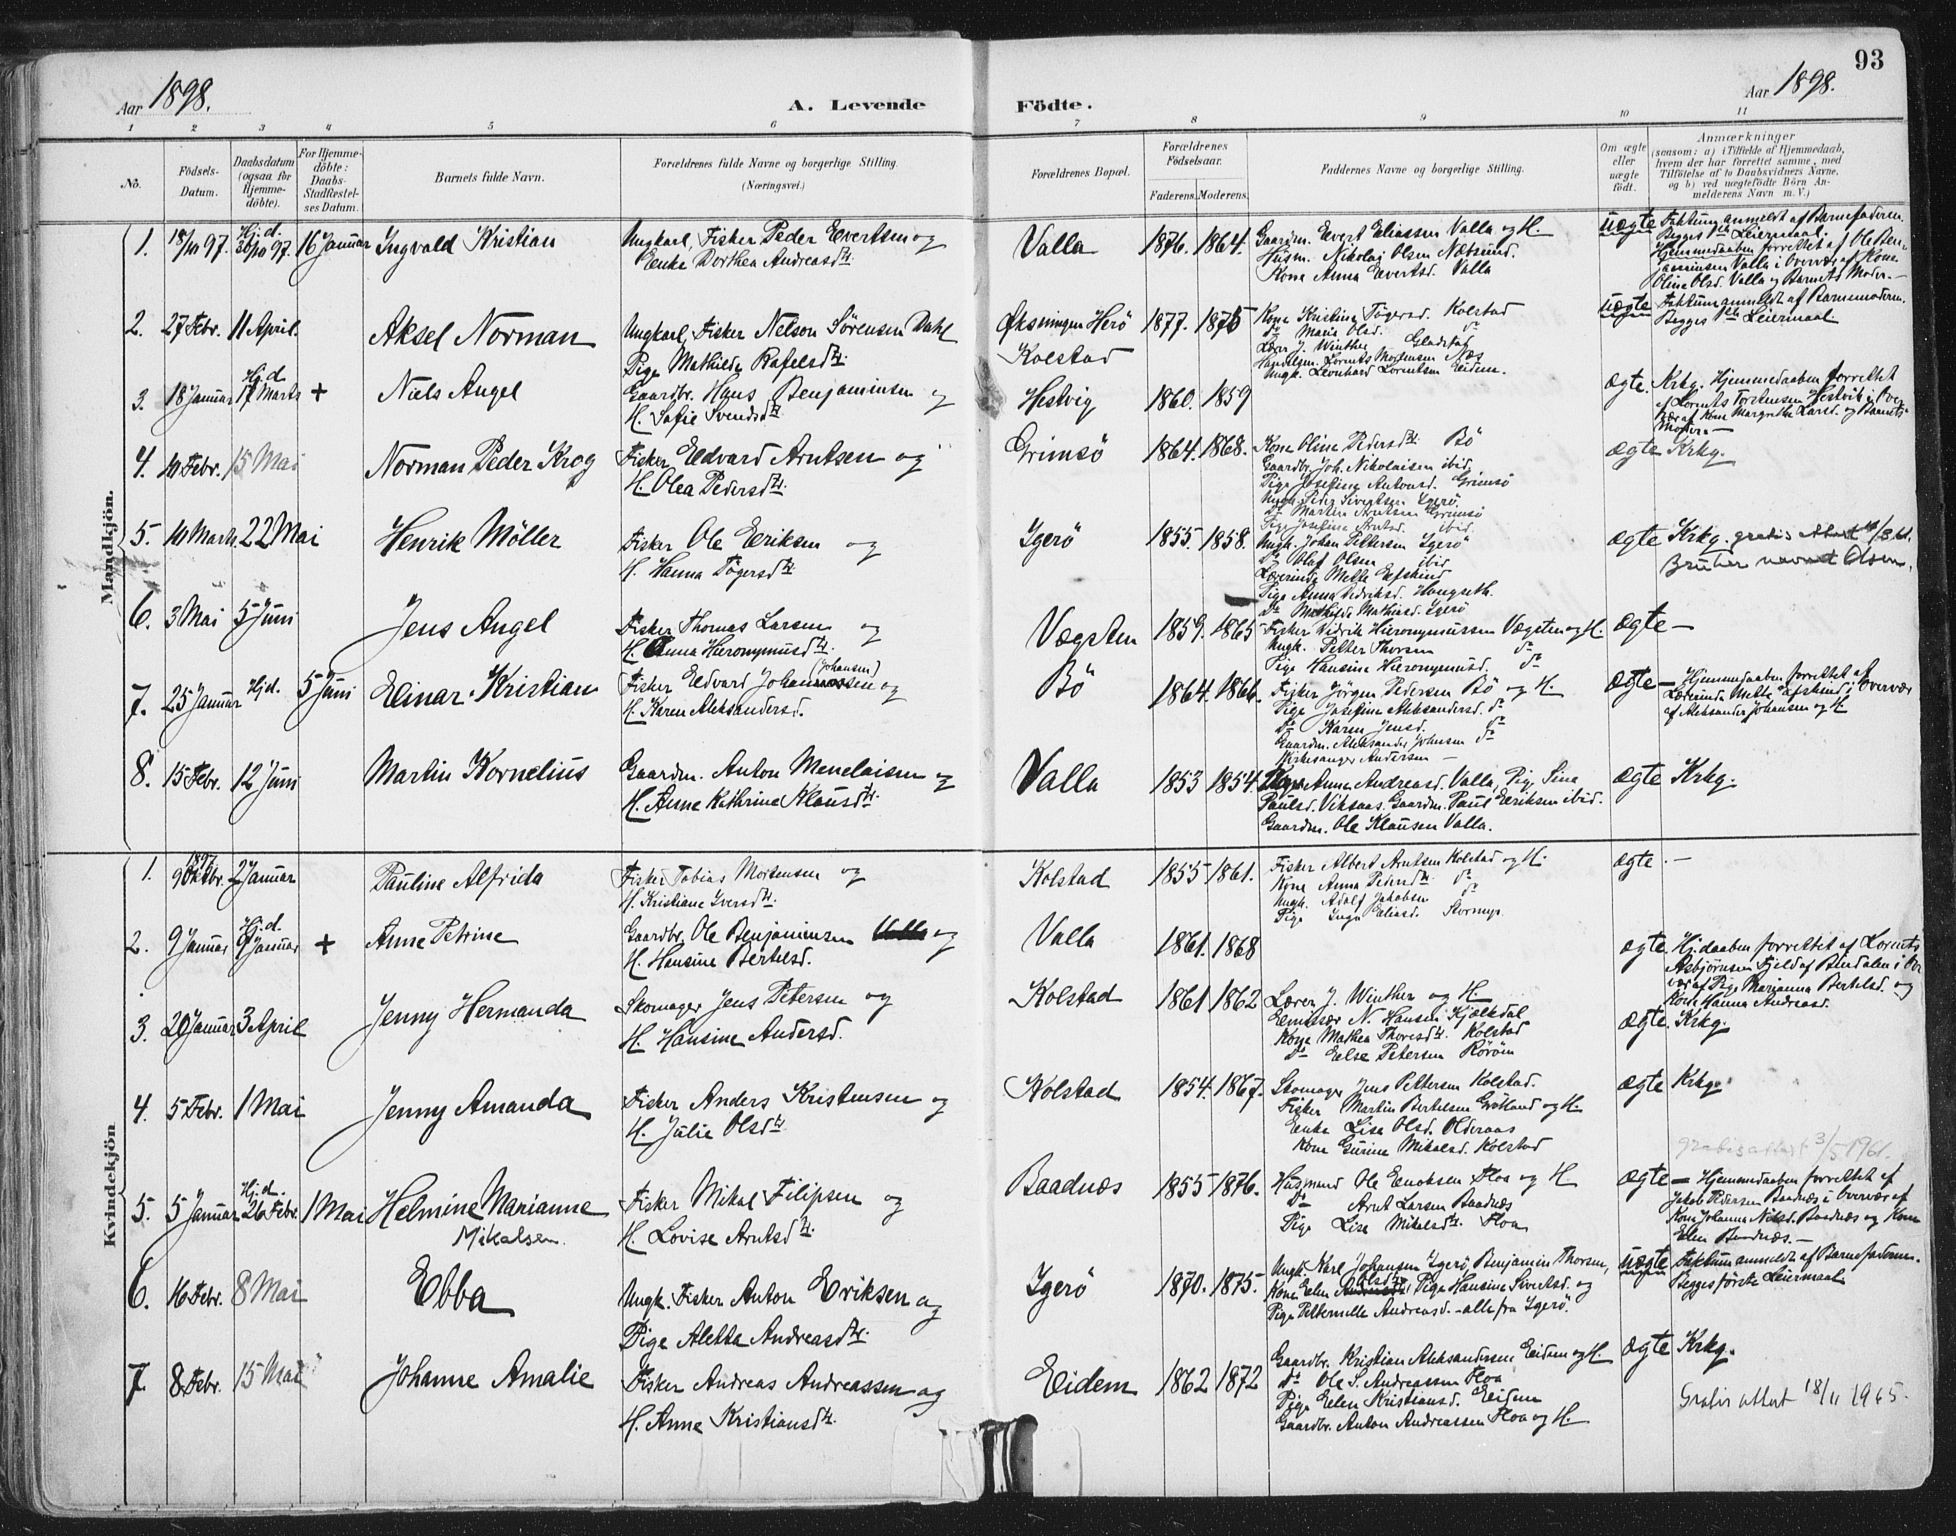 93
Aar 1898.
A. Levende Födte.
Aar 1898.
1 2 3 4 5 6 7 8 9 10 11
No.
Födsels-Datum.
Daabsdatum (ogsaa for Hjemmedöbte).
For Hjemmedöbte: Daabs-Stadfæstelses Datum.
Barnets fulde Navn.
Forældrenes fulde Navne og borgerlige Stilling. (Næringsvei.)
Forældrenes Bopæl.
Forældrenes Födselsaar.
Faderens. Moderens.
Faddernes Navne og borgerlige Stilling.
Om ægte eller uægte födt.
Anmærkninger (saasom: a) i Tilfælde af Hjemmedaab, hvem der har forrettet samme, med Tilföielse af to Daabsvidners Navne, og b) ved uægtefödte Börn Anmelderens Navn m. V.)
Mandkjön.
1. 18/10 97. Hj.d. 30/10 97. 16 Januar Ingvald Kristian
Ungkarl, Fisker Peder Evertsen og
Enke Dorthea Andreasdtr.
Valla 1876. 1864.
Gaardm. Evert Eliassen Valla og H.
Husm. Nikolai Olsen Næsund.
Kone Anna Evertsd. Valla
uægte Faktum anmeldt af Barnefaderen.
Begges 1ste Leiermaal.
Hjemmedaaben forrettet af Ole Ben-
jaminsen Valla i Overvær af Kone
Oline Olsd. Valla og Barnets Moder.
2. 27 Febr. 11 April. Aksel Norman
Ungkarl, Fisker Nelson Sörensen Dahl
Pige Mathilde Rafelsdtr.
Öksningen Herö
Kolstad
1877. 1875
Kone Kristina Tögersd. Kolstad
do Maria Olsd. do
Lærer J. Winther Gladstad
Handelsm. Lorents Mortensen Næs
Ungk. Leonhard Lorentsen Eidem.
uægte Faktum anmeldt af Barnemoderen.
Begges 1ste Leiermaal.
3. 18 Januar Hj.d. 17 Marts + Niels Angel
Gaardbr. Hans Benjaminsen og
H. Sofie Svendsdtr.
Hestvig 1860. 1859
ægte. Krkg. Hjemmedaaben forrettet
af Lorents Torstensen Hestvik i Over-
vær af Kone Margrethe Larsd. og Barnets
Moder.
4. 10 Febr. 15 Mai Norman Peder Krog
Fisker Edvard Arntsen og
H. Olea Pedersdtr.
Grimsö 1864. 1868.
Kone Oline Pedersdtr. Bö
Gaardbr. Joh. Nikolaisen ibid.
Pige Josefine Antonsd. Grimsö
Ungk. Peder Sivertsen Ygerö
do Martin Arntsen Grimsö
Pige Josefine Arntsd. ibid.
ægte Krkg.
5. 10 Marts. 22 Mai Henrik Möller
Fisker Ole Eriksen og
H. Hanna Tögersdtr.
Ygerö 1855. 1858.
Ungk. Johan Pettersen Ygerö
do Olaf Olsen ibid
Lærerinde Mette Elfskind
Pige Anna Vedriksd. Haugseth.
do Mathilde Mathiasd. Ygerö
ægte Krkg. gratis attest
Bruker navnet Olsen.
6. 3 Mai 5 Juni Jens Angel
Fisker Thomas Larsen og
H. Anna Hieronymusdtr.
Vægsten 1859. 1865
Fisker Vedrik Hieronymussen Vægsten og H.
Ungk. Petter Thorsen do
Pige Hansine Hieronymusd. do
ægte —
7. 25 Januar Hjd. 5 Juni Einar Kristian
Fisker Edvard Johannessen (Johansen) og
H. Karen Aleksandersd.
Bö 1864. 1866.
Fisker Jörgen Pedersen Bö og H.
Pige Josefine Aleksandersd. do
do Karen Jensd. do
Gaardm. Aleksander Johnsen do
Kirkesanger Andersen —
ægte — Hjemmedaaben forrettet af
Lærerinde Mette Elfskind i Overvær
af Aleksander Johansen og H.
8. 15 Febr. 12 Juni Martin Kornelius
Gaardm. Anton Menelaisen og
H. Anne Kathrine Klausdtr.
Valla 1853 1854.
Kone Anne Andreasd. Valla, Pige Sina
Paulsd. Viksaas. Gaardm. Paul Eriksen ibid.
Gaardm. Ole Klausen Valla.
ægte Krkg.
Kvindekjön
1. 1897 9 Oktbr. 2 Januar Pauline Alfrida
Fisker Tobias Mortensen og
H. Kristiane Iversdtr.
Kolstad 1855 1861.
Fisker Albert Arntsen Kolstad og H.
Kone Anna Pedersdtr. do
Ungk. Adolf Jakobsen do
Pige Inga Eliasd.
ægte. —
2. 9 Januar Hj.d. 9 Januar + Anne Petrine
Gaardbr. Ole Benjaminsen Valla og
H. Hansine Bertelsd.
Valla 1861. 1868
ægte Hj.daaben forrettet af Lorents
Asbjörnsen Fjeld af Bindalen i Over
vær af Pige Marianna Bertelsd. og
Kone Hanna Andreasd.
3. 20 Januar 3 April Jenny Hermanda
Skomager Jens Petersen og
H. Hansine Andersd.
Kolstad 1861 1862
Lærer J. Winther og H.
Emissær N. Hansen Hjælkdal
Kone Mathea Thoresdtr. Kolstad
do Else Petersen Rörön
ægte. Krkg.
4. 5 Febr. 1 Mai Jenny Amanda
Fisker Anders Kristensen og
H. Julie Olsdtr.
Kolstad 1854. 1867.
Skomager Jens Pettersen Kolstad.
Fisker Martin Bertelsen Grötland og H.
Enke Lise Olsd. Olderaas
Kone Gurine Mikalsd. Kolstad
ægte Krkg.
gratisattest 3/5 1961.
5. 5 Januar Hj.d. 26 Febr. 1 Mai Helmine Marianne
Mikalsen.
Fisker Mikal Filipsen og
H. Lovise Arntsdtr.
Baadnæs 1855 1876.
Husmand Ole Enoksen Floa og H
do Arnt Larsen Baadnæs
Pige Lise Mikelsdtr. Floa
ægte — Hjemmedaaben forrettet af
Jakob Pedersen Baadnæs i Overvær af
Kone Johanna Nilsd. Baadnæs og Kone
Elen Baadnæs. —
6. 16 Febr. 8 Mai Ebba
Ungk. Fisker Anton Eriksen og
Pige Aletta Andreasdtr.
Ygerö 1870. 1875.
Ungk. Karl Johansen Ygerö, Benjamin Thorsen,
Kone Elen Olsdtr. Pige Hansine Sivertsd. og
Pige Petternille Andreasd. — alle fra Ygerö.
uægte Faktum anmeldt af Barnefaderen.
Begges förste Leiermaal.
7. 8 Febr. 15 Mai Johanne Amalie
Fisker Andreas Andreassen og
H. Anne Kristiansdtr.
Eidem 1862 1872
Gaardbr. Kristian Aleksandersen Eidem og H.
do Ole S. Andreassen Floa
Pige Elen Kristiansd. Eidem
Gaardbr. Anton Andreassen Floa og H.
ægte Krkg.
Gratis attest 18/11 1965.